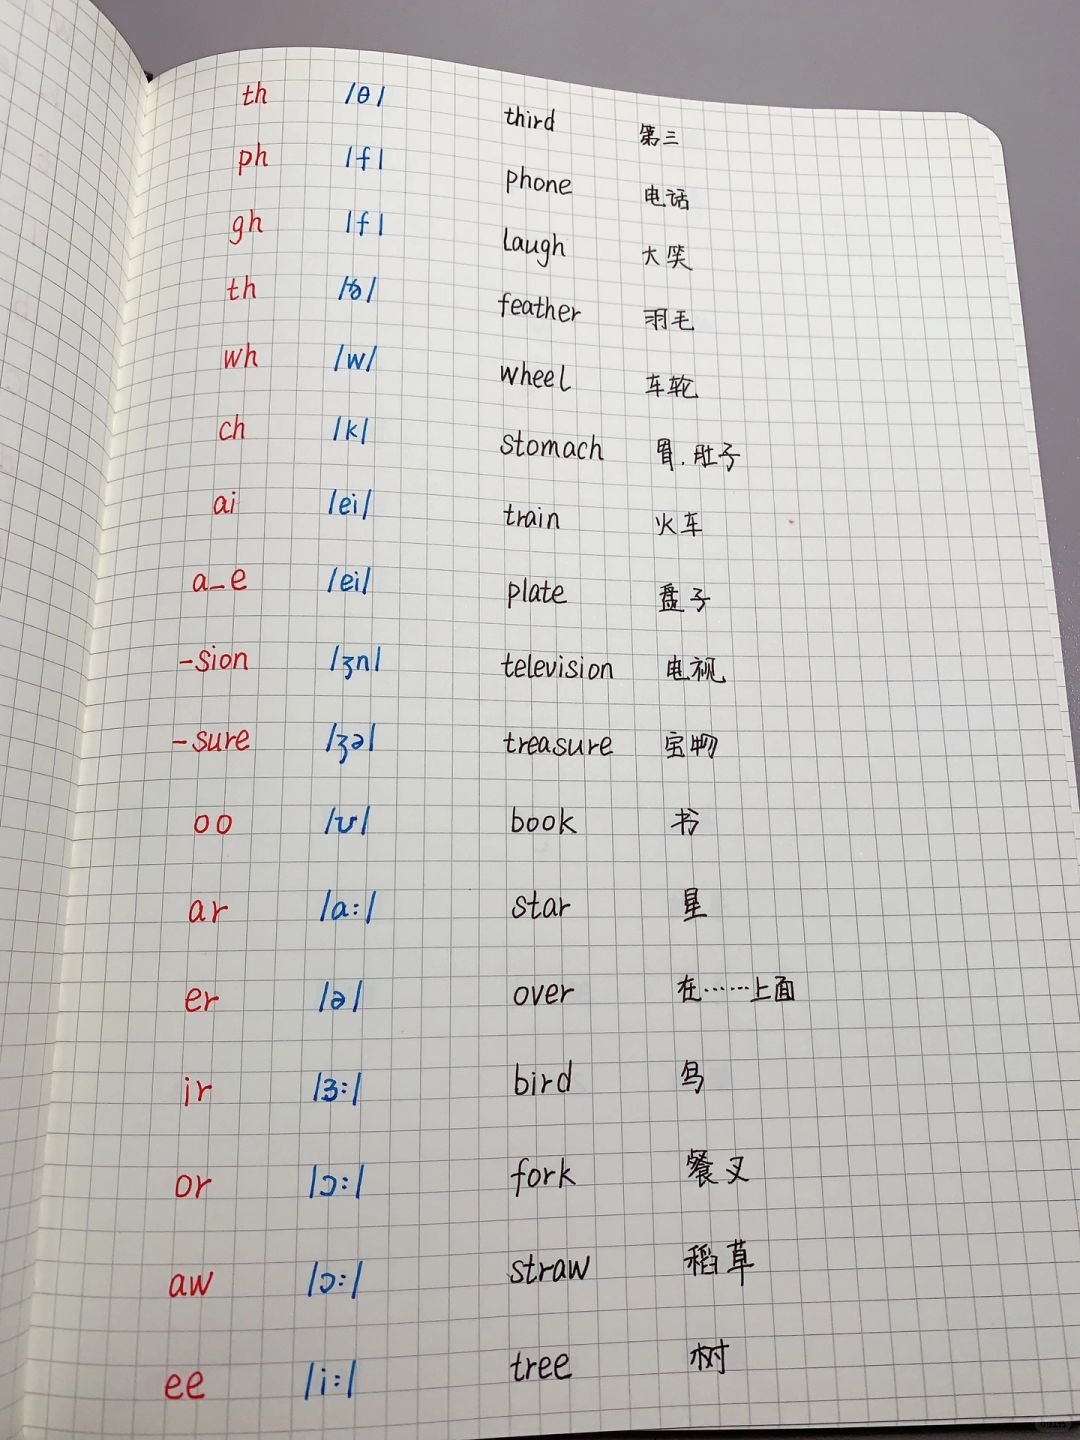 th /θ/ third 第三
ph /f/ phone 电话
gh /f/ laugh 大笑
th /ð/ feather 羽毛
wh /w/ wheel 车轮
ch /k/ stomach 胃.肚子
ai /ei/ train 火车
a_e /ei/ plate 盘子
-sion /ʒn/ television 电视
-sure /ʒə/ treasure 宝物
oo /ʊ/ book 书
ar /a:/ star 星
er /ə/ over 在……上面
ir /ɜ:/ bird 鸟
or /ɔ:/ fork 餐叉
aw /ɔ:/ straw 稻草
ee /i:/ tree 树